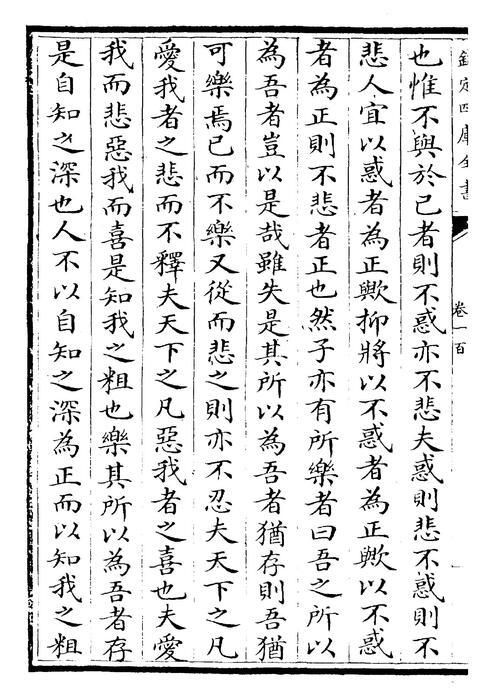 欽定四庫全書
卷一百
也惟不與於已者則不惑亦不悲夫惑則悲不惑則不
悲人宜以惑者為正歟抑將以不惑者為正歟以不惑
者為正則不悲者正也然子亦有所樂者曰吾之所以
為吾者豈以是哉雖失是其所以為吾者猶存則吾猶
可樂焉已而不樂又從而悲之則亦不忍夫天下之凡
愛我者之悲而不釋夫天下之凡惡我者之喜也夫愛
我而悲惡我而喜是知我之粗也樂其所以為吾者存
是自知之深也人不以自知之深為正而以知我之粗